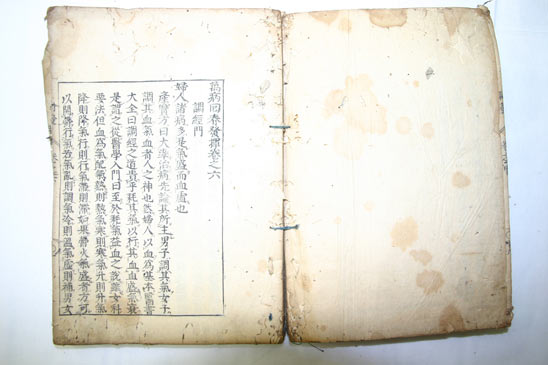 萬病回春發揮卷之六
調經門
婦人諸病多是氣盛而血虛也
產寶方曰大率治病先論其所主男子調其氣女子
調其血氣血者人之神也然婦人以血為基本
大全曰調經之道貴乎耗其氣以行其血血盛氣衰
是謂之從醫學入門曰至於耗氣益血之說雖女科
要法但血為氣配氣熱則熱氣寒則寒氣升則升氣
降則降氣行則行氣滯則滯如果鬱火氣盛者方可
以開鬱行氣若氣亂則調氣冷則溫氣虛則補男女